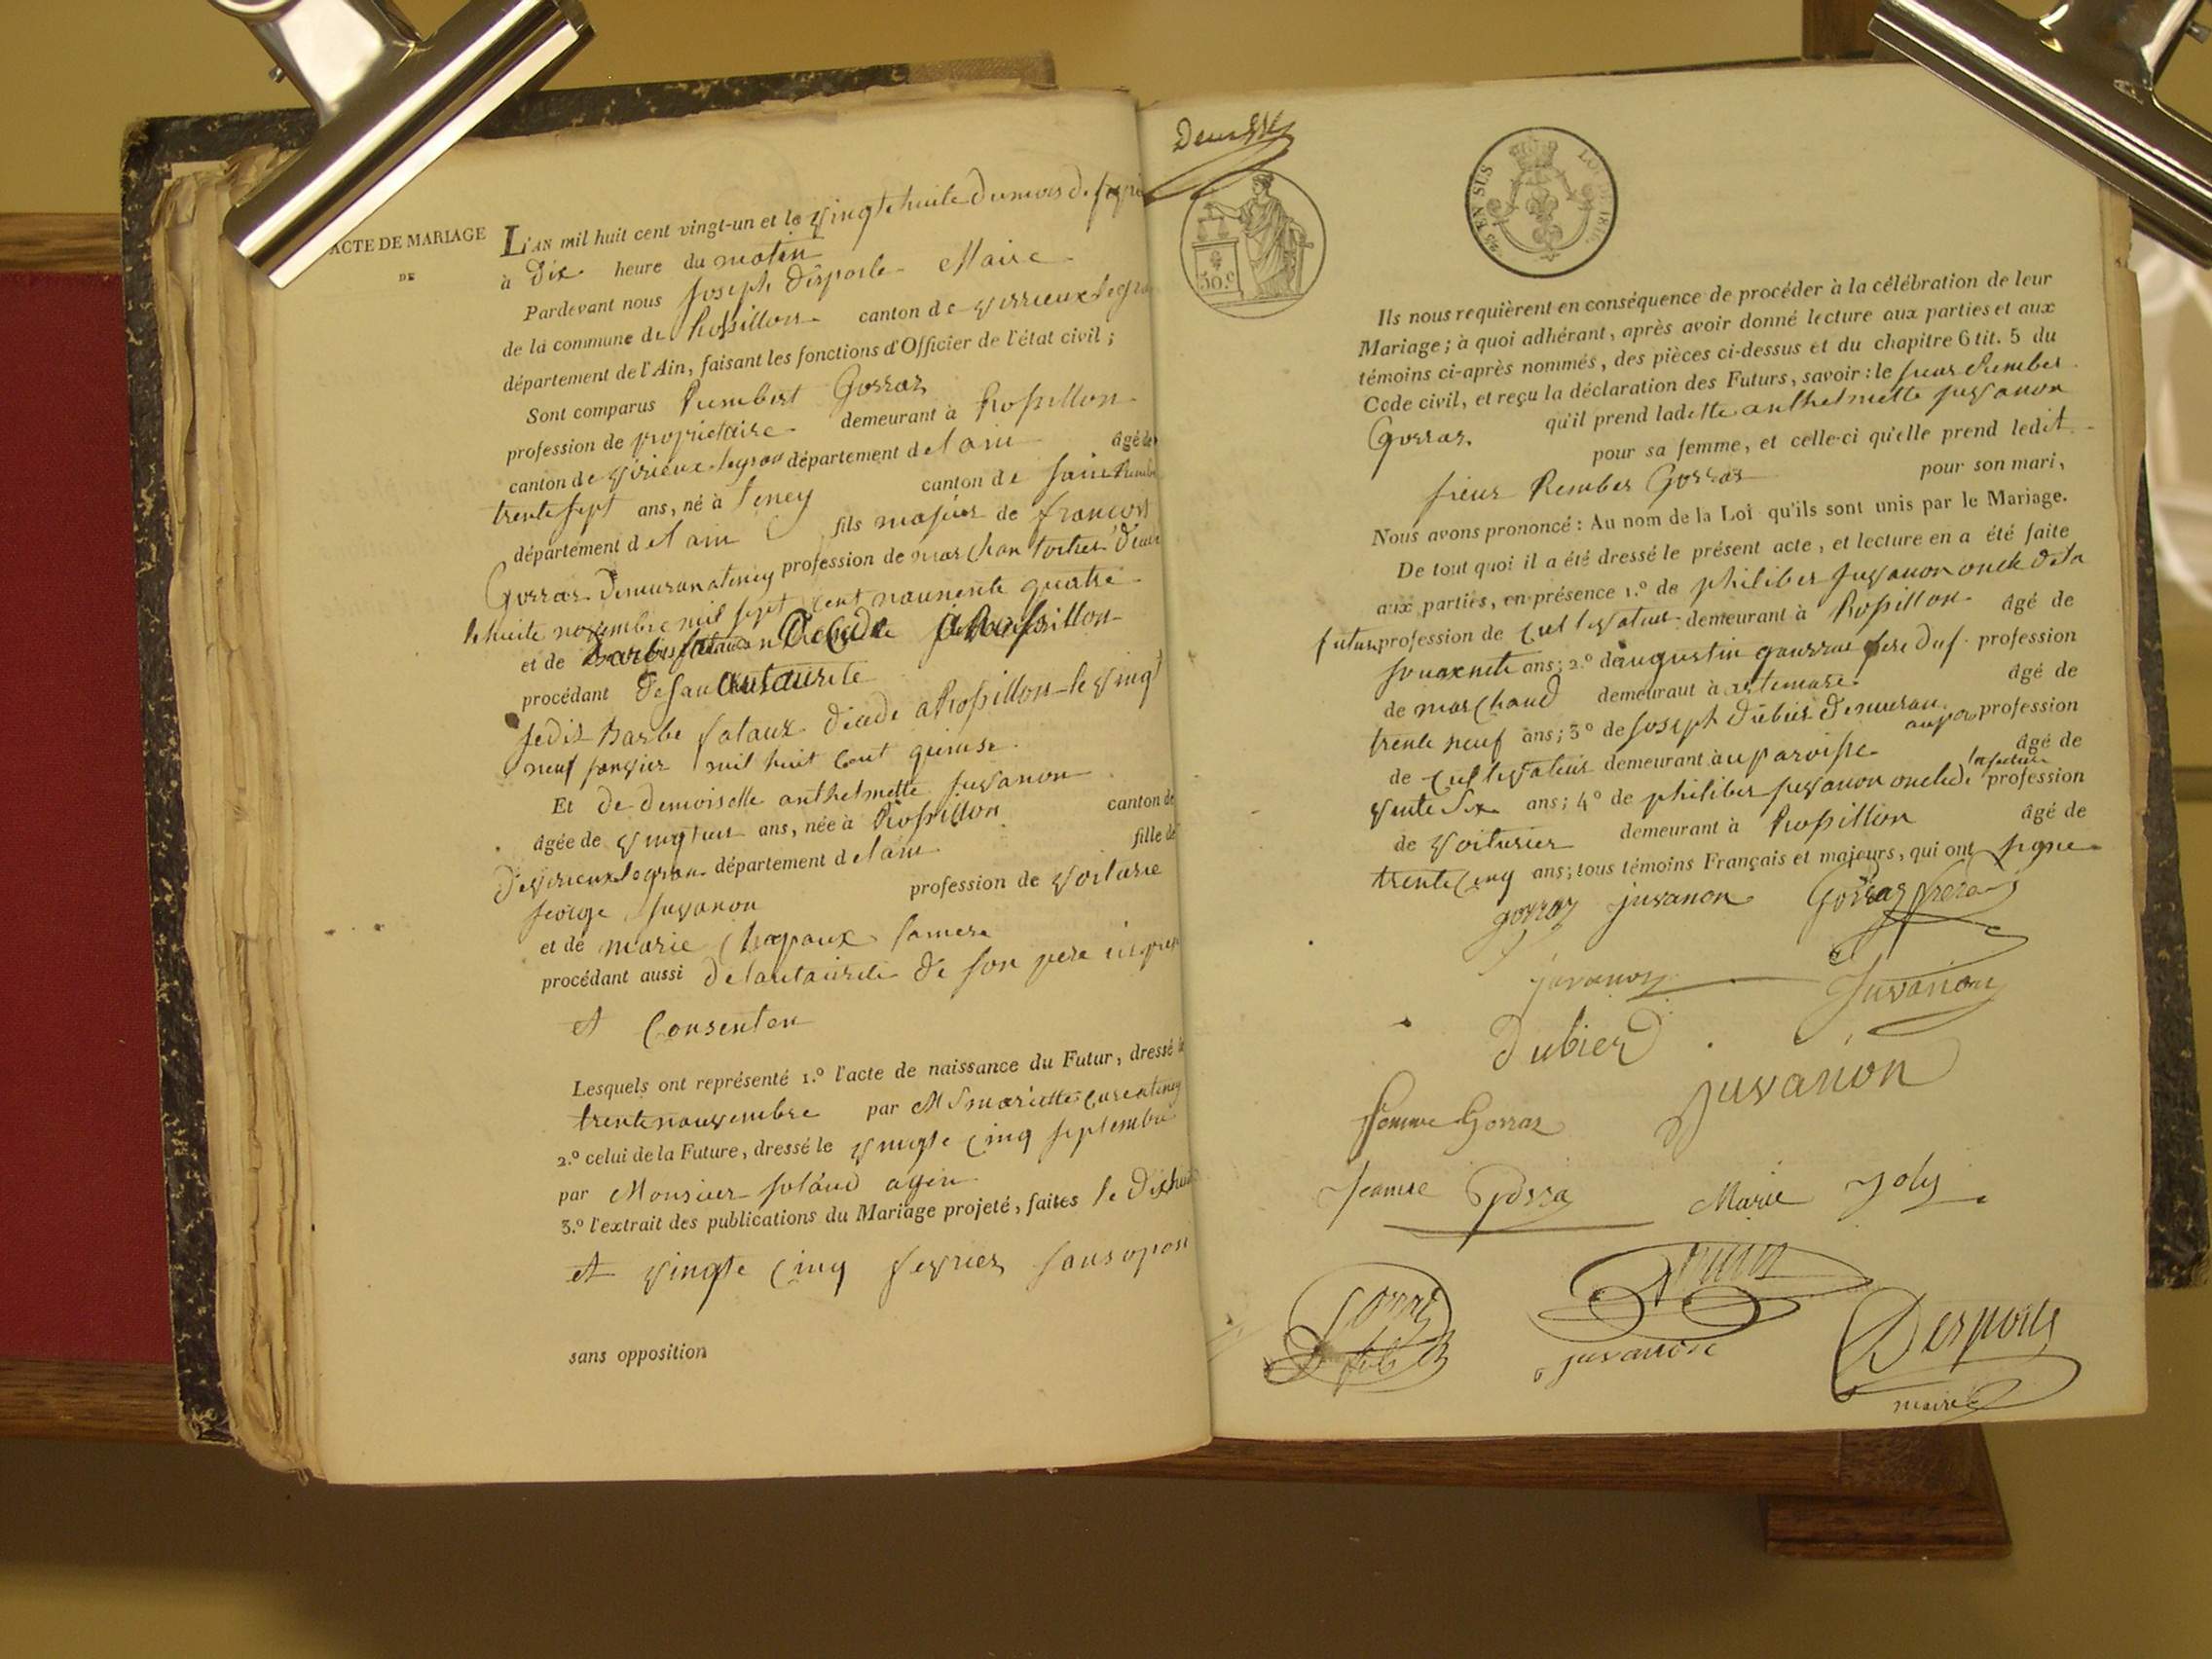 ACTE DE MARIAGE
DE
L'AN mil huit cent vingt-un et le vingte huite du mois de
à dix heure du matin
Pardevant nous Joseph desporte Maire
de la commune de Rossillon canton de virrieux legran
département de l'Ain, faisant les fonctions d'Officier de l'état civil ;
Sont comparus Rembert Gorraz
profession de propriétaire demeurant à Rossillon
canton de virieux legran département de lain âgé de
trente sept ans, né à Teney canton de Saint Rembe
département de lain fils majeur de francois
Gorraz demeuran ateney profession de marchan
le huite novembre mil sept cent nounente quatre
et de Rossillon
procédant de sau autaurite
ledit Barbe décédé a Rossillon le vingt
neuf janvier mil huit cent quinse
Et de demoiselle anthelmette Juvanon
âgée de ans, née à Rossillon canton de
de virieux legran département de lain fille de
george Juvanon profession de voiturie
et de marie Chapaux samere
procédant aussi de lautaurite de son pere
et Consentan
Lesquels ont représenté 1.º l'acte de naissance du Futur, dressé le
trente nouvembre par
2.º celui de la Future, dressé le vingte cinq septembre
par Monsieur
3.º l'extrait des publications du Mariage projeté, faites le dixhuit
et vingte cinq fevrier sans oposi
sans opposition
50.c
25 EN SUS
LOI DE 1816.
Ils nous requièrent en conséquence de procéder à la célébration de leur
Mariage ; à quoi adhérant, après avoir donné lecture aux parties et aux
témoins ci-après nommés, des pièces ci-dessus et du chapitre 6 tit. 5 du
Code civil, et reçu la déclaration des Futurs, savoir : le sieur Rember
Gorraz qu'il prend ladette anthelmette juvanon
pour sa femme, et celle-ci qu'elle prend ledit
sieur Rember Gorraz pour son mari,
Nous avons prononcé : Au nom de la Loi qu'ils sont unis par le Mariage.
De tout quoi il a été dressé le présent acte, et lecture en a été faite
aux parties, en présence 1.º de philiber Juvanon oncle dela
future profession de cultivateur demeurant à Rossillon âgé de
ans ; 2.º de augustin profession
de marchand demeurant à artemare âgé de
trente neuf ans ; 3º de Joseph dubier demeuran profession
de cultivateur demeurant à uparoisse âgé de
trente six ans ; 4º de philiber juvanon oncle de lafuture profession
de voiturier demeurant à Rossillon âgé de
trente cinq ans ; tous témoins Français et majeurs, qui ont signe
gorraz juvanon Gorraz
juvanon Juvanon
dubier
femme Gorraz Juvanon
Jeanne Gorra Marie Joly
juvanon
Desporte
maire